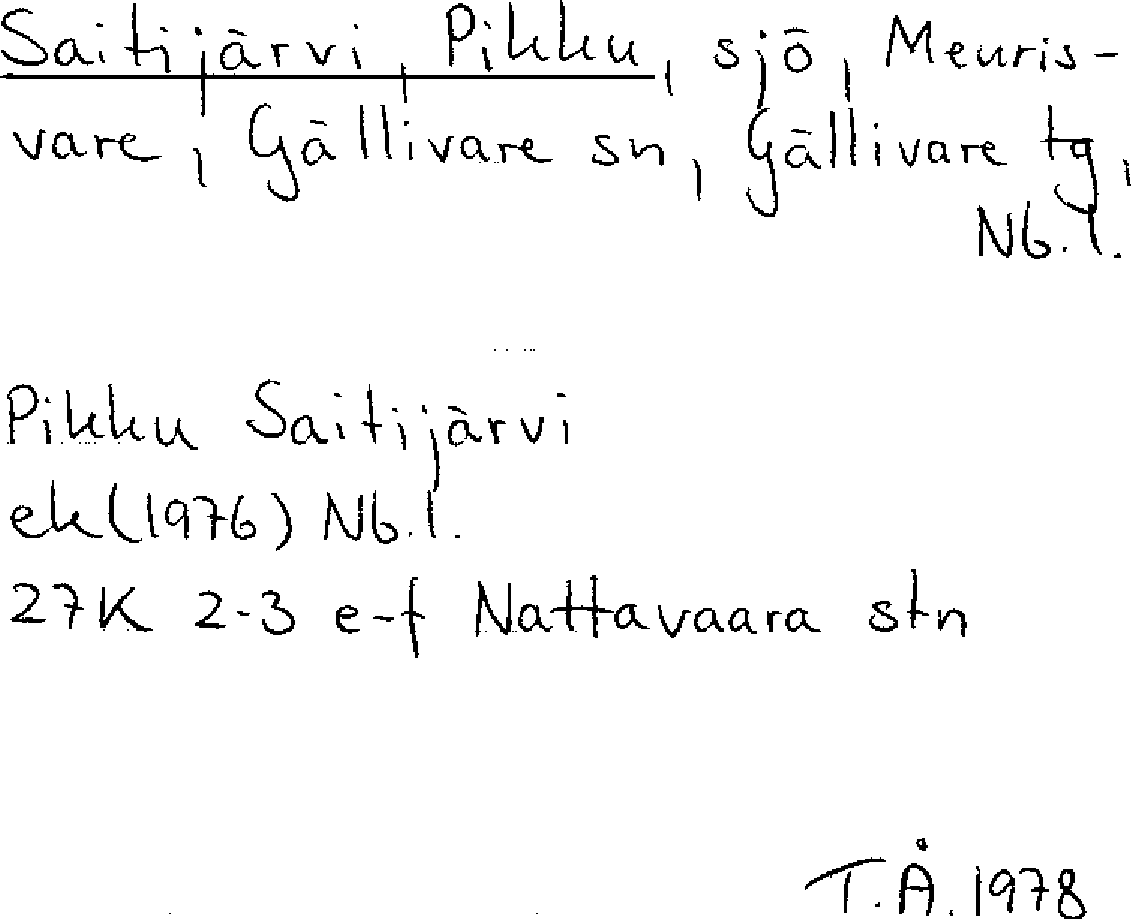 Saitijärvi, Pikku, sjö, Meuris-
vare, Gällivare sn, Gällivare tg,
Nb. l.
Pikku Saitijärvi
ek (1976) Nb. l.
27K 2-3 e-f Nattavaara stn
T.Å. 1978